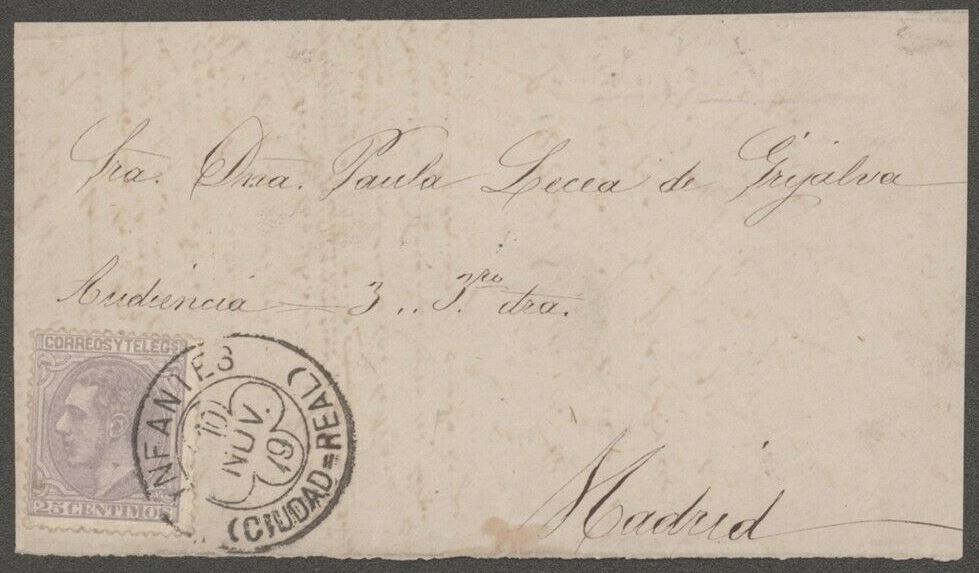 Sra. Dña. Paula Lecea de Grijalva
Audiencia — 3 .. 3.ro dra.
CORREOS Y TELEGS
25 CENTIMOS
INFANTES
10
NOV.
79
(CIUDAD=REAL)
Madrid